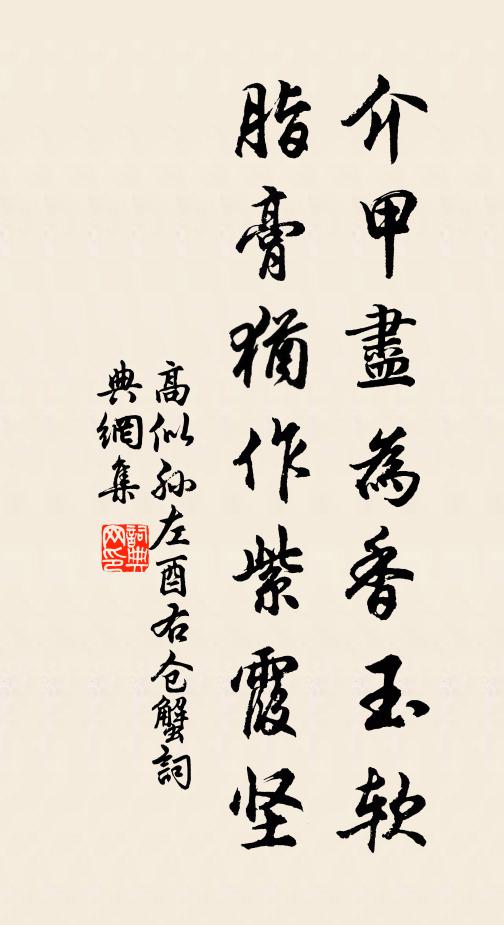 介甲盡為香玉軟
脂膏猶作紫霞坚
高似孙左酉右仓蟹詞
典網集
詞典网印